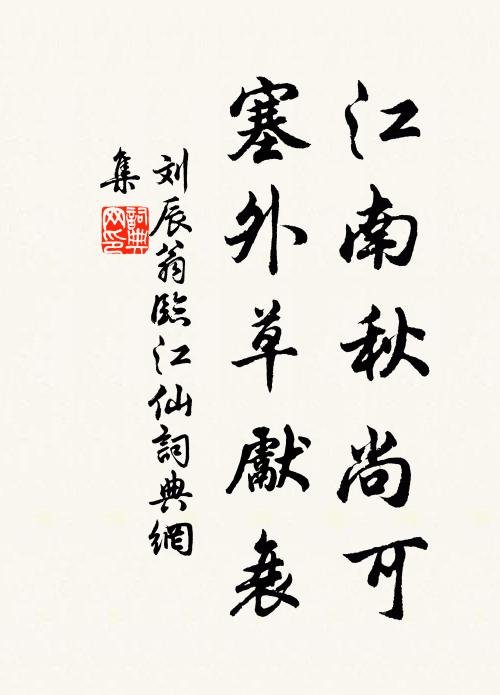 江南秋尚可
塞外草獻衰
刘辰翁臨江仙詞典網
集
詞典
网印